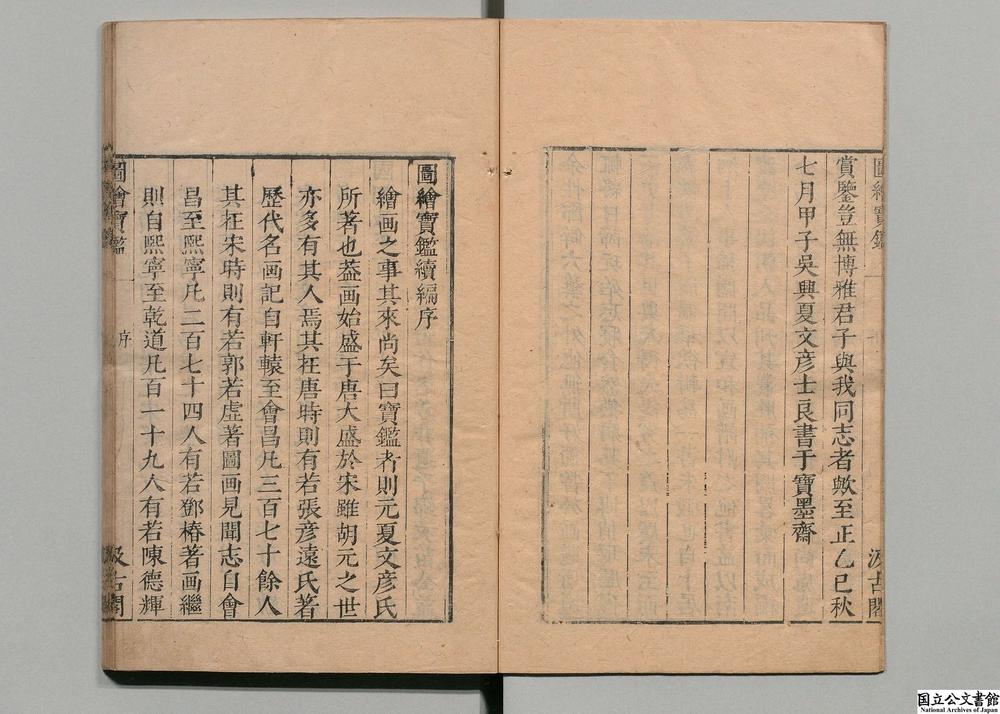 圖繪寶鑑
汲古閣
賞鑒豈無博雅君子與我同志者歟至正乙巳秋
七月甲子吳興夏文彥士良書于寶墨齋
圖繪寶鑑續編序
繪画之事其來尚矣曰寶鑑者則元夏文彦氏
所著也葢画始盛于唐大盛於宋雖胡元之世
亦多有其人焉其在唐時則有若張彦遠氏著
歷代名画記自軒轅至會昌凡三百七十餘人
其在宋時則有若郭若虛著圖画見聞志自會
昌至熙寧凡二百七十四人有若鄧椿著画繼
則自熙寧至乾道凡百一十九人有若陳德輝
圖繪寶鑑
序
汲古閣
国立公文書館
National Archives of Japan